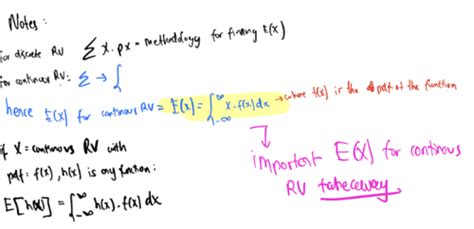 Notes:
for discrete RV Σ x.px = methodology for finding E(x)
for continous RV: Σ → ∫
hence E(x) for continous RV = E(x) = ∫_{-∞}^{∞} x.f(x)dx → where f(x) is the pdf of the function
important E(x) for continous
RV takeaway
if X = continuous RV with
pdf: f(x), h(x) is any function:
E[h(x)] = ∫_{-∞}^{∞} h(x).f(x) dx